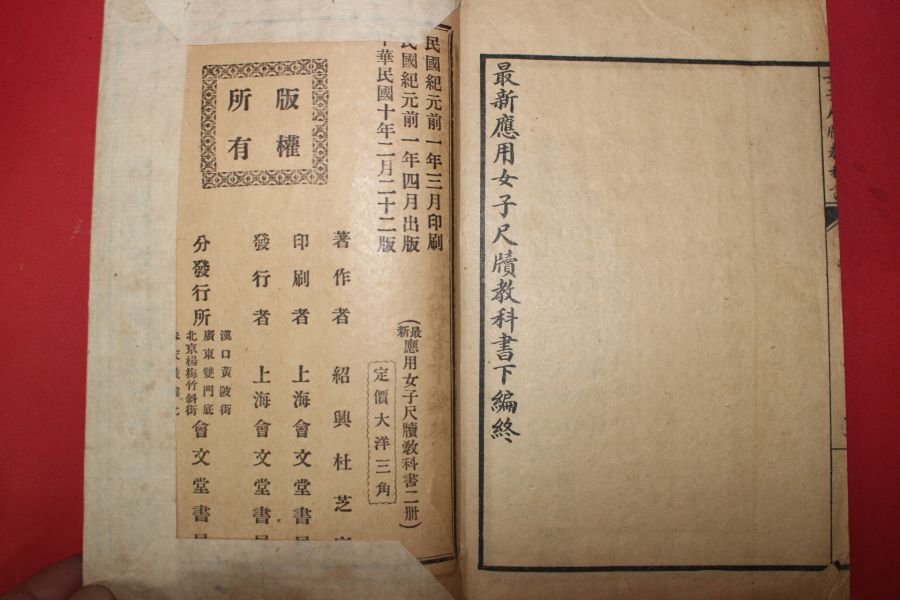 最新應用女子尺牘教科書下編終
民國紀元前一年三月印刷
民國紀元前一年四月出版
中華民國十年二月二十二版
(最新應用女子尺牘教科書二册)
定價大洋三角
著作者 紹興杜芝
印刷者 上海會文堂書
發行者 上海會文堂書
版權
所有
分發行所
漢口黃陂街
廣東雙門底
北京楊梅竹斜街
會文堂書